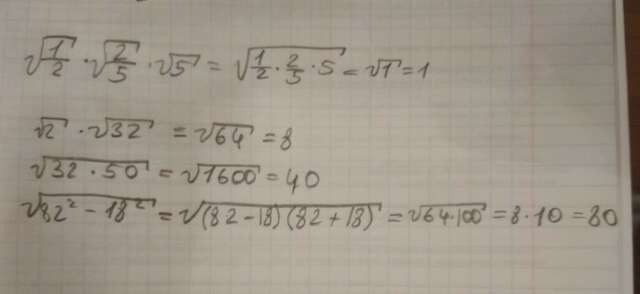 √(1/2) · √(2/5) · √5 = √(1/2 · 2/5 · 5) = √1 = 1
√2 · √32 = √64 = 8
√(32 · 50) = √1600 = 40
√(82² − 18²) = √((82 − 18)(82 + 18)) = √(64·100) = 8 · 10 = 80